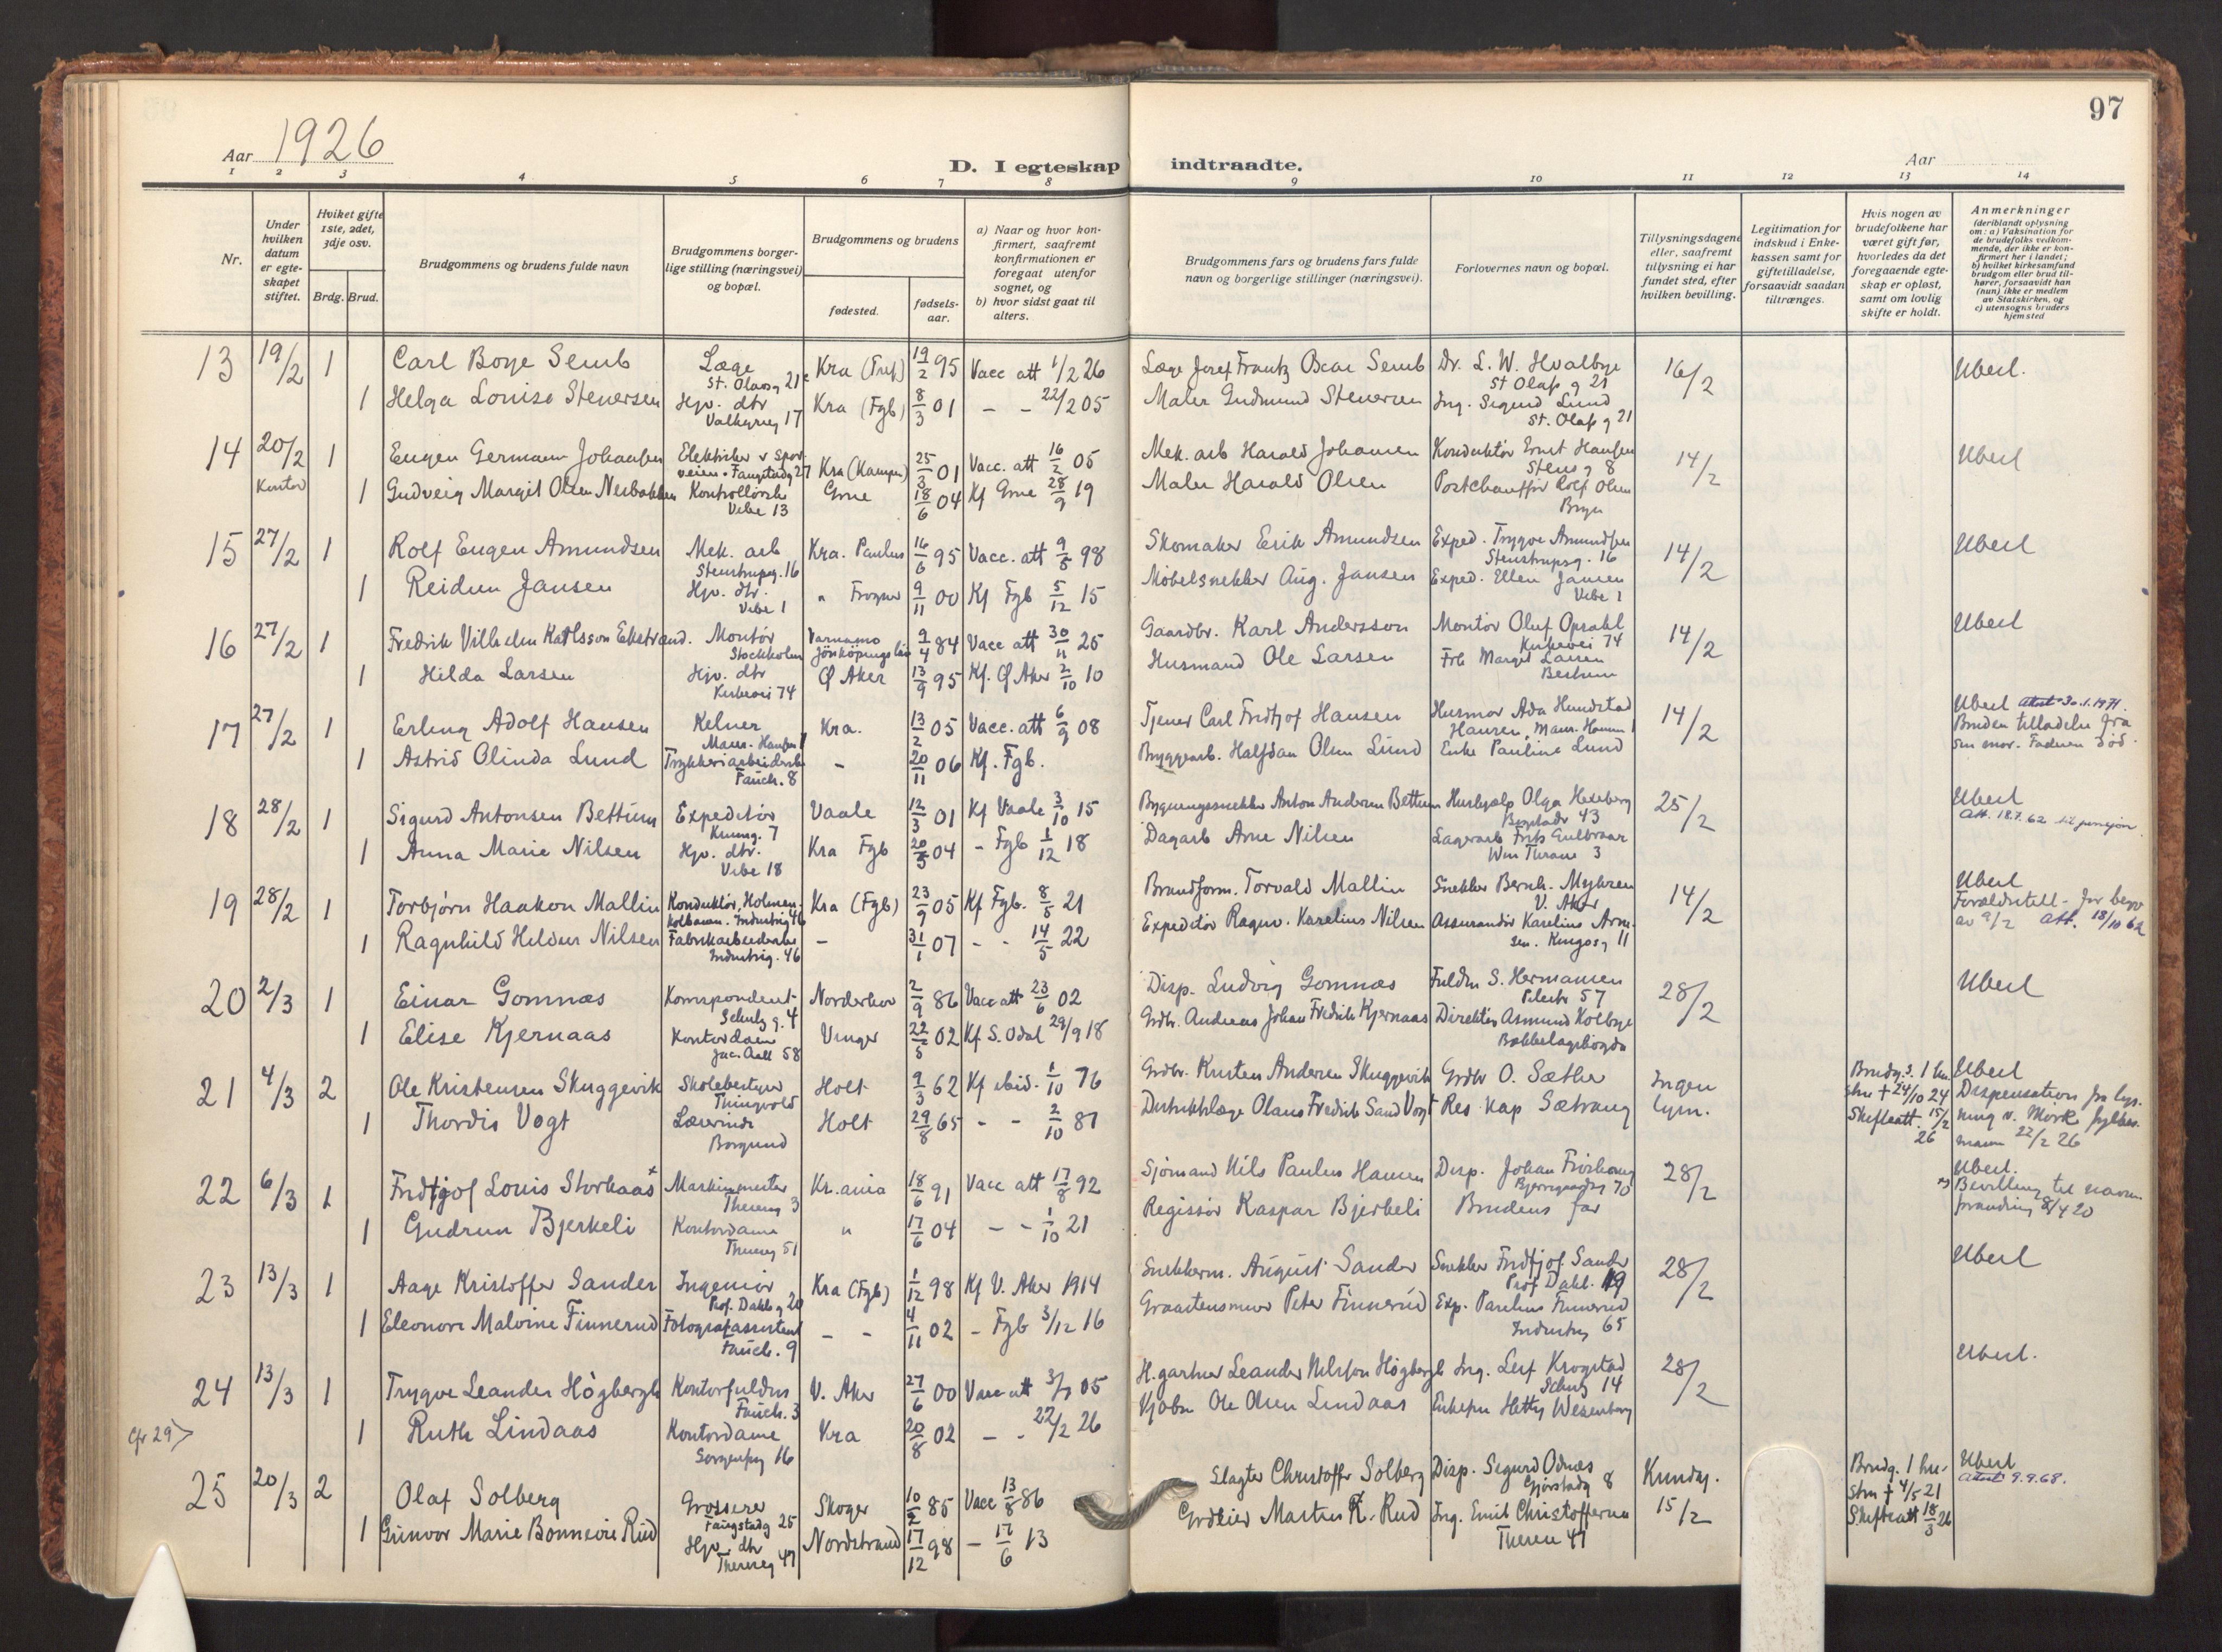 97
Aar 1926
D. I egteskap indtraadte.
Aar
1 2 3 4 5 6 7 8 9 10 11 12 13 14
Nr.
Under hvilken datum er egteskapet stiftet.
Hviket gifte 1ste, 2det, 3dje osv.
Brdg. Brud.
Brudgommens og brudens fulde navn
Brudgommens borgerlige stilling (næringsvei) og bopæl.
Brudgommens og brudens
fødested.
fødselsaar.
a) Naar og hvor konfirmert, saafremt konfirmationen er foregaat utenfor sognet, og
b) hvor sidst gaat til alters.
Brudgommens fars og brudens fars fulde navn og borgerlige stillinger (næringsvei).
Forlovernes navn og bopæl.
Tillysningsdagene eller, saafremt tillysning ei har fundet sted, efter hvilken bevilling.
Legitimation for indskud i Enkekassen samt for giftetilladelse, forsaavidt saadan tiltrænges.
Hvis nogen av brudefolkene har været gift før, hvorledes da det foregaaende egteskap er opløst, samt om lovlig skifte er holdt.
Anmerkninger
(deriblandt oplysning om: a) Vaksination for de brudefolks vedkommende, der ikke er konfirmert her i landet; b) hvilket kirkesamfund brudgom eller brud tilhører, forsaavidt han (hun) ikke er medlem av Statskirken, og c) utensogns bruders hjemsted
13 19/2 1 Carl Boye Semb Læge St. Olavsg 21 Kra (Tref) 19/2 95 Vacc att 1/2 26 Læge Josef Frantz Oscar Semb Dr. L. W. Hvalbye St Olafs g 21 16/2 Ubesl.
1 Helga Louise Stenersen Hjv. dtr Valkyrieg 17 Kra (Fgb) 8/3 01 - - 22/2 05 Maler Gudmund Stenersen Ing. Sigurd Lund St. Olafs g 21
14 20/2 Kontor 1 Eugen Germann Johansen Elektriker v Sporveien. Fangstadg 27 Kra (Kampen) 25/3 01 Vacc. att 16/2 05 Mek. arb Harald Johansen Konduktør Ernst Hansen Stens g 8 14/2 Ubesl
1 Gudveig Margit Olsen Nesbakken Kontrollørske Vibe 13 Grue 18/6 04 Kf Grue 28/9 19 Maler Harald Olsen Postchauffør Rolf Olsen Bryn
15 27/2 1 Rolf Eugen Amundsen Mek. arb Stenstrupsg. 16 Kra. Paulus 16/6 95 Vacc. att 9/5 98 Skomaker Erik Amundsen Exped. Trygve Amundsen Stenstrupsg. 16 14/2 Ubesl
1 Reidun Jansen Hjv. dtr. Vibe 1 " Frogner 9/11 00 Kf Fgb 5/12 15 Møbelsnekker Aug. Jansen Exped. Ellen Jansen Vibe 1
16 27/2 1 Fredrik Vilhelm Karlsson Ekstrand. Montør Stockholm Varnamo Jönköpings län 9/4 84 Vacc att 30/11 25 Gaardbr. Karl Andersson Montör Oluf Opsahl Kirkevei 74 14/2 Ubesl
1 Hilda Larsen Hjv. dtr Kirkevei 74 Ø Aker 13/9 95 Kf. Ø Aker 2/10 10 Husmand Ole Larsen Frk Margit Larsen Bestum
17 27/2 1 Erling Adolf Hansen Kelner Maur. Hansen 1 Kra. 13/2 05 Vacc. att 6/9 08 Tjener Carl Fridtjof Hansen Husmor Ada Hundstad Hansen, Maur. Hansen 1 14/2 Ubesl attest 30.1.1971. Bruden tilladelse fra sin mor. Faderen död.
1 Astrid Olinda Lund Trykkeriarbeiderske Fauch. 8 - 20/11 06 Kf. Fgb. Bryggearb. Halfdan Olsen Lund Enke Pauline Lund
18 28/2 1 Sigurd Antonsen Bettum Expeditör Krumg. 7 Vaale 12/3 01 Kf Vaale 3/10 15 Bygningssnekker Anton Andersen Bettum Hushjælp Olga Hexeberg Bogstadv 43 25/2 Ubesl Att. 18.7.62 til pensjon
1 Anna Marie Nilsen Hjv. dtr. Vibe 18 Kra Fgb 20/3 04 - Fgb 1/12 18 Dagarb Arne Nilsen Lagerarb Frits Gulbraar Wm Thrane 3
19 28/2 1 Torbjörn Haakon Mallin Konduktör, Holmenkolbanen. Industrig 46 Kra (Fgb) 23/9 05 Kf Fgb. 8/5 21 Brandform. Torvald Mallin Snekker Bernh. Myhren V. Aker 14/2 Ubesl Forældretill. for begge av 9/2 Att. 18/10 62
1 Ragnhild Heldur Nilsen Fabrikarbeiderske Industrig. 46 - 31/1 07 - - 14/5 22 Expeditör Ragnv. Karelius Nilsen Assurandör Karelius Arnesen. Kingosg 11
20 2/3 1 Einar Gomnæs Korrspondent Schulz g. 4 Norderhov 2/9 86 Vacc att 23/6 02 Disp. Ludvig Gomnæs Fuldm S. Hermansen Pilestr 57 28/2 Ubesl
1 Elise Kjernaas Kontordame Jac. Aall 58 Vinger 22/5 02 Kf S. Odal 29/9 18 Grdbr. Andreas Johan Fredrik Kjernaas Direktör Asmund Kolbye Bækkelagshögda
21 4/3 2 Ole Kristensen Skuggevik Skolebestyrer Thingvold Holt 9/3 62 Kf ibid. 1/10 76 Grdbr. Kristen Andersen Skuggevik Grdbr O. Sæther Ingen lysn. Brudg.s. 1 hustru † 24/10 24 Skifteatt. 15/2 26 Ubesl Dispensation fra lysning v. Möre fylkesmann 22/2 26
1 Thordis Vogt Lærerinde Borgund Holt 29/8 65 - - 2/10 81 Distriktslæge Olaus Fredrik Sand Vogt Res Kap Sætrang
22 6/3 1 Fridtjof Louis Storhaas x Maskinmester Theresg 3 Kr.ania 18/6 91 Vacc att 17/8 92 Sjömand Nils Paulus Hansen Disp. Johan Frishaug Bjerregaardsg 70 28/2 Ubesl. x) Bevilling til navneforandring 8/4 20
1 Gudrun Bjerkeli Kontordame Theresg 51 " 17/6 04 - - 1/10 21 Regissör Kaspar Bjerkeli Brudens far
23 13/3 1 Aage Kristoffer Sander Ingeniör Prof. Dahls g 20 Kra (Fgb) 1/12 98 Kf V. Aker 1914 Snekkerm. August Sander Snekker Fridtjof Sander Prof Dahl. 19 28/2 Ubesl
1 Eleonore Malvine Finnerud Fotografassistent Fauch. 9 - - 4/11 02 - Fgb 3/12 16 Graastensmurer Peter Finnerud Exp. Paulus Finnerud Industrig 65
24 13/3 1 Trygve Leander Högbergh Kontorfuldm Fauch. 3 V. Aker 27/6 00 Vacc att 3/7 05 H.gartner Leander Nilsson Högbergh Ing. Leif Krogstad Schulz 14 28/2 Ubesl.
1 Ruth Lindaas Kontordame Sorgenfrig 16 Kra 20/8 02 - - 22/2 26 Kjöbm Ole Olsen Lindaas Enkefru Hetty Wesenberg
cfr 29>
25 20/3 2 Olaf Solberg Grosserer Fangstadg 25 Skoger 10/2 85 Vacc 13/8 86 Slagter Christoffer Solberg Disp. Sigurd Odnæs Gjörstadg 8 Kundg. 15/2 Brudg. 1 hustru † 4/5 21 Skifteatt 18/3 26 Ubesl attest 9.9.68.
1 Gunvor Marie Bonnevie Rud Hjv. dtr Theresg 47 Nordstrand 17/12 98 - 17/6 13 Grdeier Martin K. Rud Ing. Emil Christoffersen Therese 47